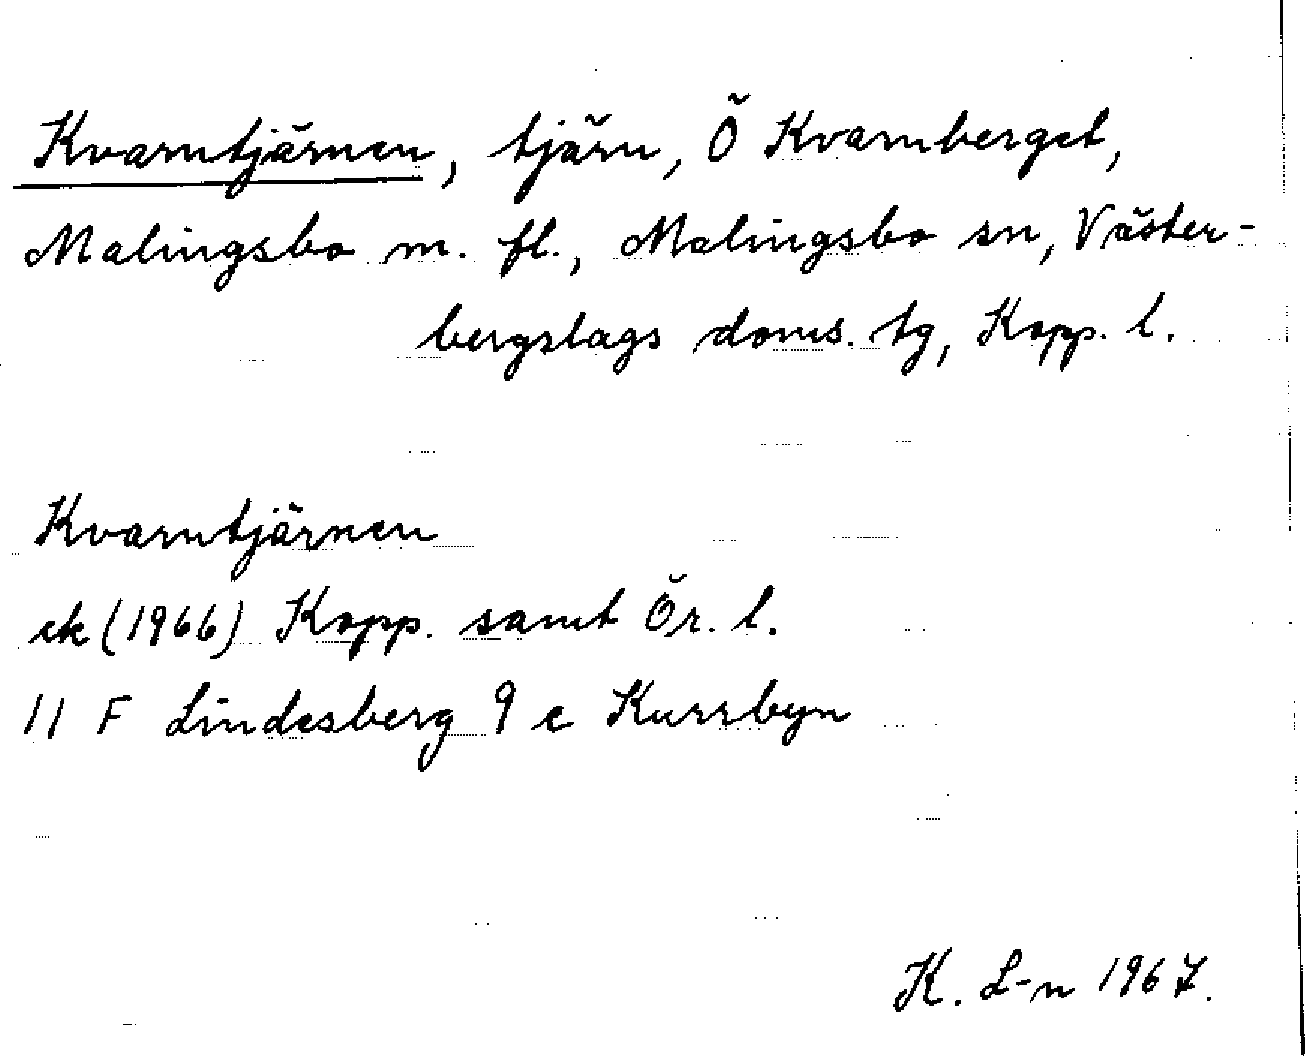 Kvarntjärnen, tjärn, Ö Kvarnberget,
Malingsbo m. fl., Malingsbo sn, Väster-
bergslags doms. tg, Kopp. l.
Kvarntjärnen
ek (1966) Kopp. samt Ör. l.
11 F Lindesberg 9 e Kursbyn
K. L-n 1967.